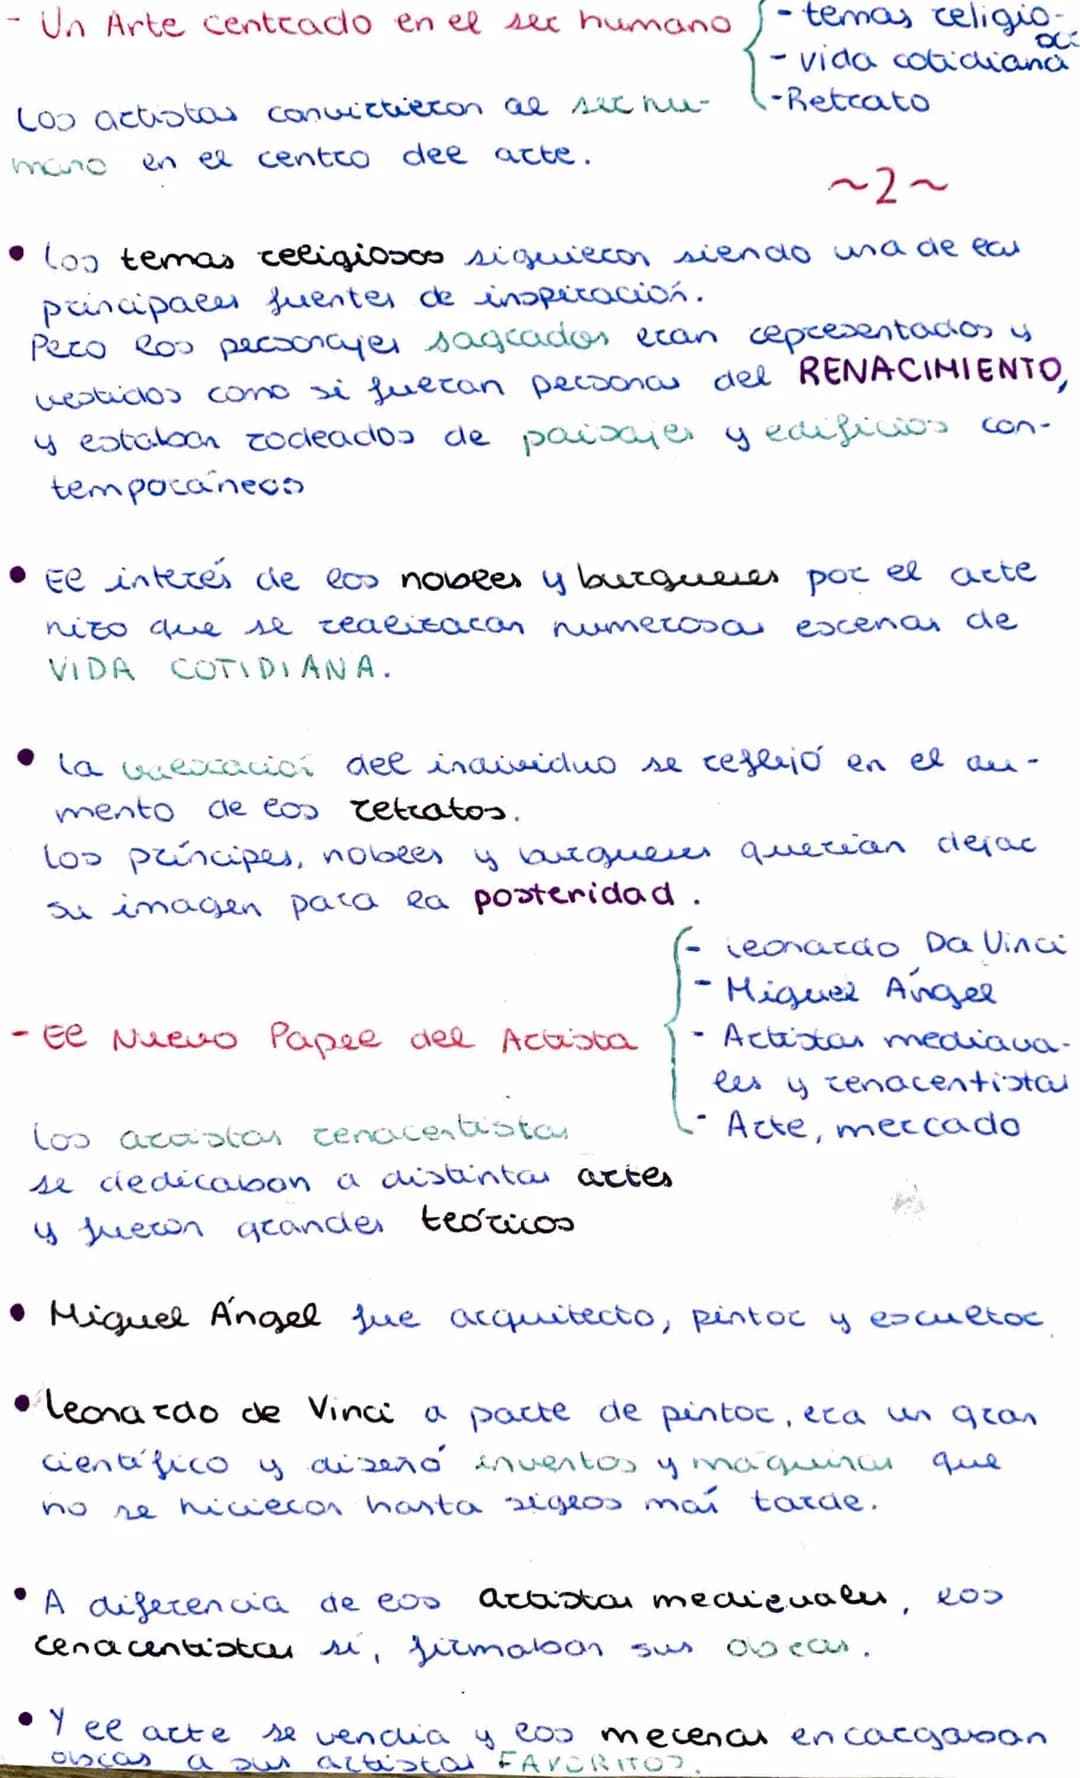 - Un Arte centrado en el ser humano
- temas religiosos
- vida cotidiana
- Retrato
Los artistas convirtieron al ser hu-
mano en el centro del arte.
~2~
• Los temas religiosos siguieron siendo una de las
principales fuentes de inspiración.
Pero los personajes sagrados eran representados y
vestidos como si fueran personas del RENACIMIENTO,
y estaban rodeados de paisajes y edificios con-
temporáneos
• El interés de los nobles y burgueses por el arte
hizo que se realizaran numerosas escenas de
VIDA COTIDIANA.
• La valoración del individuo se reflejó en el au-
mento de los retratos.
Los príncipes, nobles y burgueses querían dejar
su imagen para la posteridad.
- El Nuevo Papel del Artista
- Leonardo Da Vinci
- Miguel Ángel
- Artistas mediava-
les y renacentistas
- Arte, mercado
Los artistas renacentistas
se dedicaban a distintas artes
y fueron grandes teóricos
• Miguel Ángel fue arquitecto, pintor y escultor
• Leonardo de Vinci a parte de pintor, era un gran
científico y diseñó inventos y máquinas que
no se hicieron hasta siglos más tarde.
• A diferencia de los artistas medievales, los
renacentistas sí, firmaban sus obras.
• Y el arte se vendía y los mecenas encargaban
obras a sus artistas FAVORITOS.